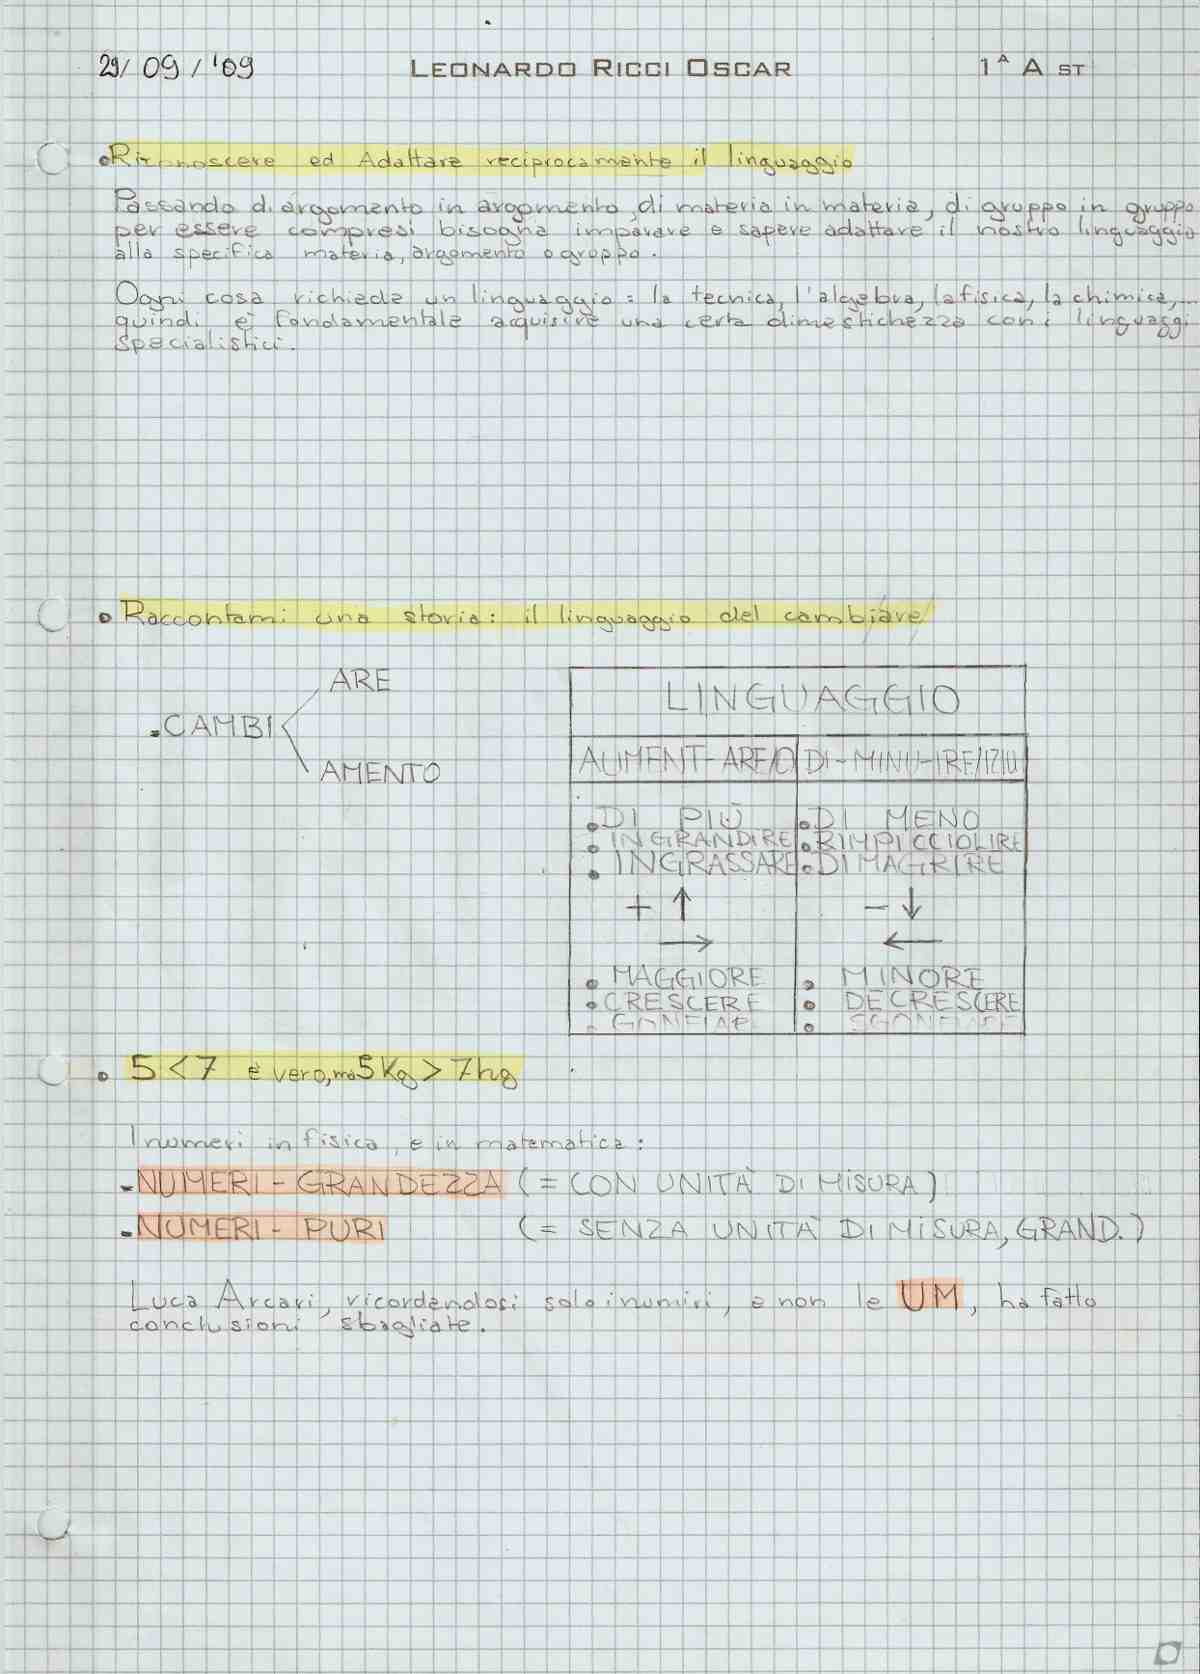 29/09/'09 LEONARDO RICCI OSCAR 1ᴬ A ST
•Riconoscere ed Adattare reciprocamente il linguaggio
Passando di argomento in argomento, di materia in materia, di gruppo in gruppo
per essere compresi bisogna imparare e sapere adattare il nostro linguaggio
alla specifica materia, argomento o gruppo.
Ogni cosa richiede un linguaggio: la tecnica, l'algebra, la fisica, la chimica,...
quindi è fondamentale acquisire una certa dimestichezza con i linguaggi
specialistici.
• Raccontami una storia: il linguaggio del cambiare
ARE
•CAMBI
AMENTO
LINGUAGGIO
AUMENT-ARE/O DI-MINU-IRE/IZIO
•DI PIÙ •DI MENO
•INGRANDIRE •RIMPICCIOLIRE
•INGRASSARE •DIMAGRIRE
+ ↑ - ↓
→ ←
• MAGGIORE • MINORE
•CRESCERE • DECRESCERE
• GONFIARE • SGONFIARE
• 5<7 è vero, ma 5Kg > 7hg
I numeri in fisica, e in matematica:
-NUMERI-GRANDEZZA (= CON UNITÀ DI MISURA)
-NUMERI-PURI (= SENZA UNITÀ DI MISURA, GRAND.)
Luca Arcari, ricordandosi solo i numiri, e non le UM, ha fatto
conclusioni sbagliate.